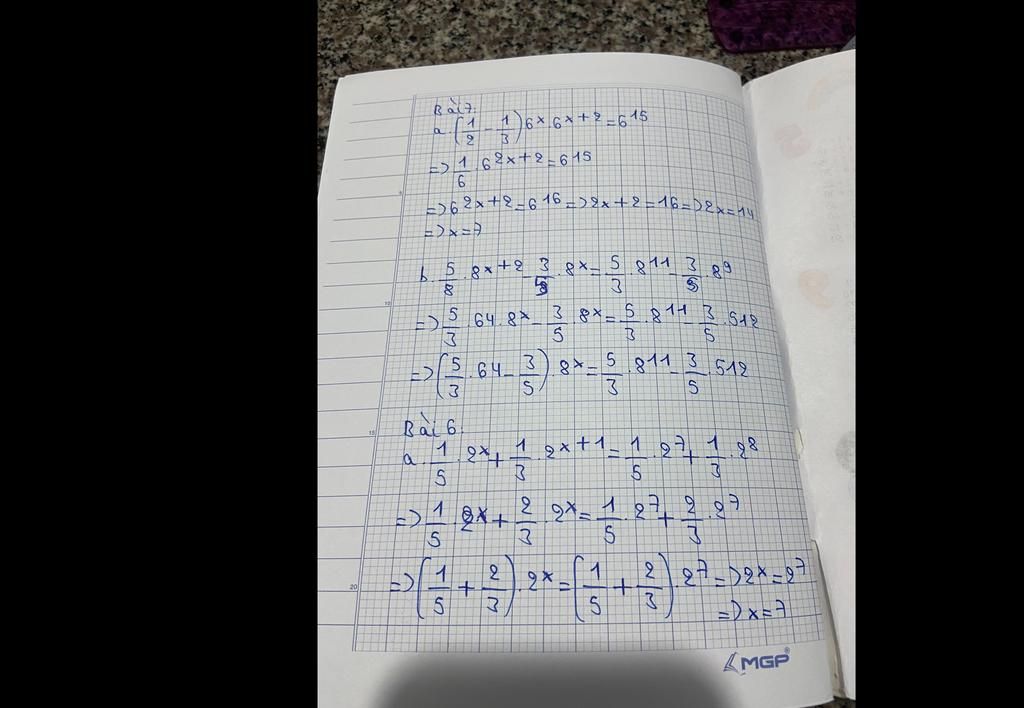 Bài 7.
a. (1/2 - 1/3) 6^x . 6^x+2 = 6^15
=> 1/6 . 6^2x+2 = 6^15
=> 6^2x+2 = 6^16 => 2x+2 = 16 => 2x = 14
=> x = 7
b. 5/8 . 8^x+2 - 3/5 . 8^x = 5/3 . 8^11 - 3/5 . 8^9
=> 5/3 . 64 . 8^x - 3/5 . 8^x = 5/3 . 8^11 - 3/5 . 512
=> (5/3 . 64 - 3/5) . 8^x = 5/3 . 8^11 - 3/5 . 512
Bài 6.
a. 1/5 . 2^x + 1/3 . 2^x+1 = 1/5 . 2^7 + 1/3 . 2^8
=> 1/5 . 2^x + 2/3 . 2^x = 1/5 . 2^7 + 2/3 . 2^7
=> (1/5 + 2/3) . 2^x = (1/5 + 2/3) . 2^7 => 2^x = 2^7
=> x = 7
MGP®
5
10
15
20